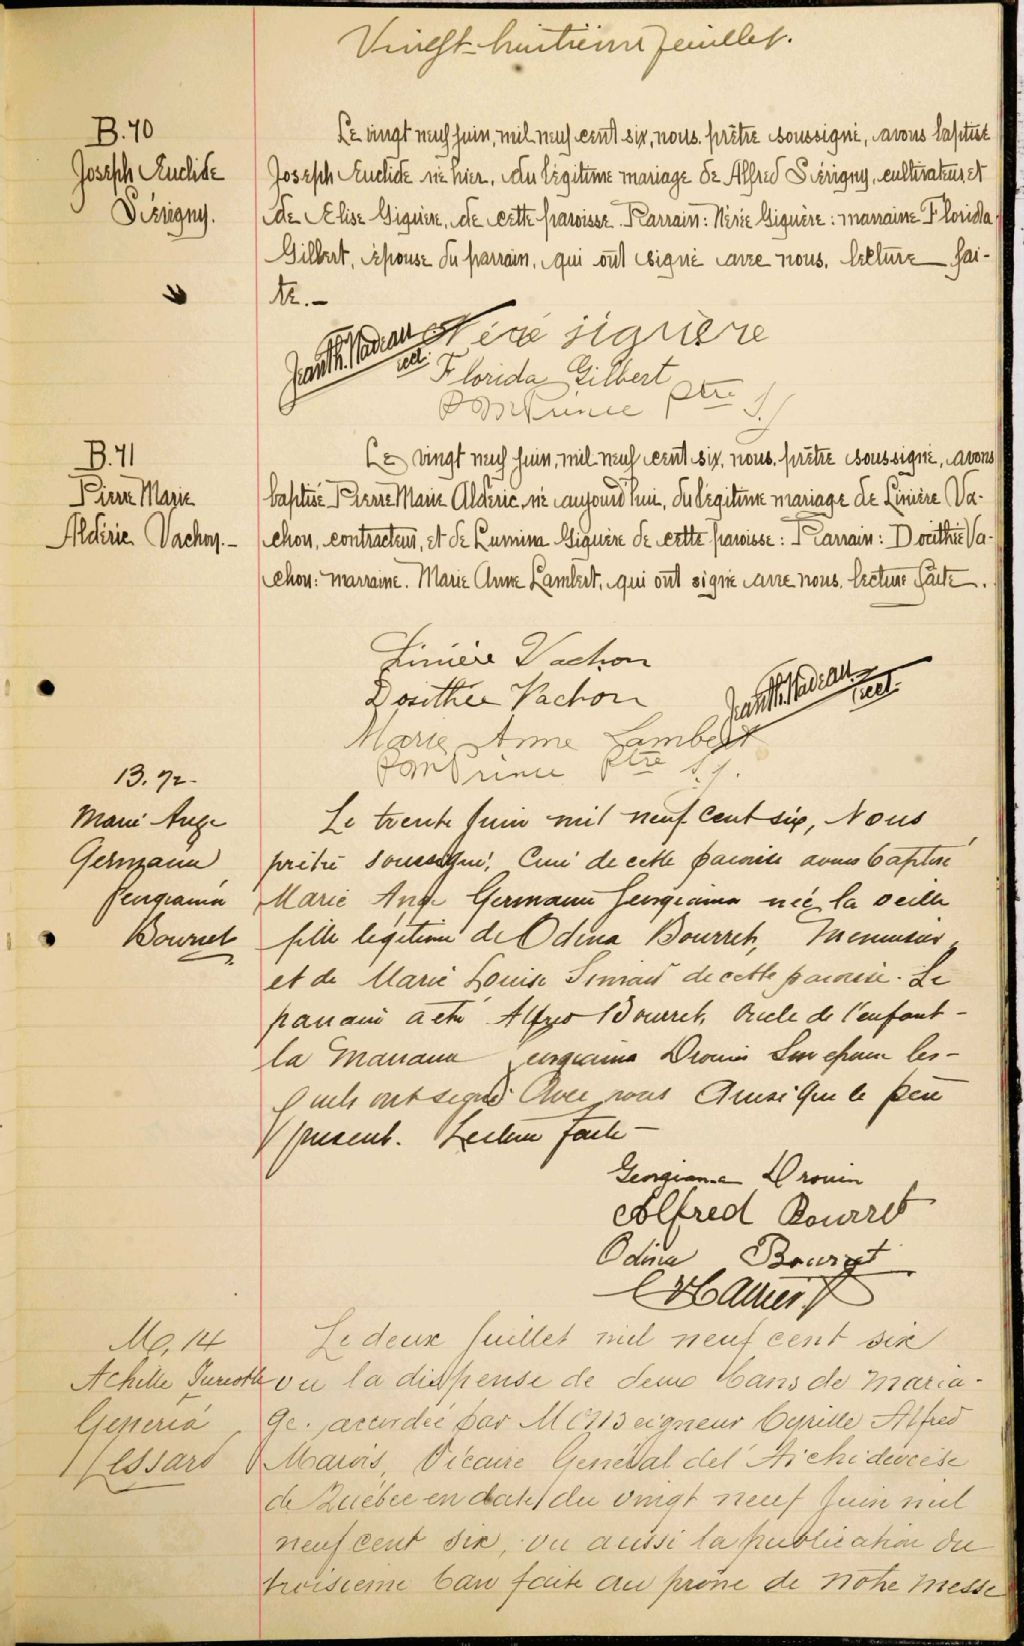 Vingt-huitième feuillet.
B.70
Joseph Euclide
Sévigny.
Le vingt neuf juin, mil neuf cent six, nous, prêtre soussigné, avons baptisé
Joseph Euclide né hier, du légitime mariage de Alfred Sévigny, cultivateur, et
de Elise Giguère, de cette paroisse. Parrain: Nérée Giguère: marraine Florida
Gilbert, épouse du parrain, qui ont signé avec nous, lecture fai-
te.-
Jean Th. Nadeau
eccl.
Néré jiguière
Florida Gilbert
Prince Ptre S.J.
B.71
Pierre Marie
Aldéric Vachon.-
Le vingt neuf juin, mil neuf cent six, nous, prêtre soussigné, avons
baptisé Pierre Marie Aldéric, né aujourd'hui, du légitime mariage de Linière Va-
chon, contracteur, et de Lumina Giguère de cette paroisse: Parrain: Dosithée Va-
chon: marraine. Marie Anne Lambert, qui ont signé avec nous, lecture faite.
Linière Vachon
Dosithée Vachon
Jean Th. Nadeau
eccl.
Marie Anne Lambert
Prince Ptre S.J.
B. 72-
Marie Ange
Germaine
Georgianna
Bourret
Le trente Juin mil neuf cent six, Nous
prêtre soussigné, Curé de cette paroisse avons baptisé
Marie Ange Germaine Georgianna née la veille
fille légitime de Odina Bourret, Menuisier,
et de Marie Louise de cette paroisse. Le
parrain a été Alfred Bourret, Oncle de l'enfant -
la Marraine Georgianna Drouin Son épouse les-
quels ont signé Avec nous Ainsi Que le père
présent. Lecture faite -
Georgianna Drouin
Alfred Bourret
Odina Bourret
M, 14
Achille Turcotte
Généria
Lessard
Le deux Juillet mil neuf cent six
vu la dispense de deux bans de maria-
ge. accordée par Monseigneur Cyrille Alfred
Marois, Vicaire Général de l'Archidiocèse
de Québec en date du vingt neuf Juin mil
neuf cent six, vu aussi la publication du
troisième ban faite au prône de notre messe